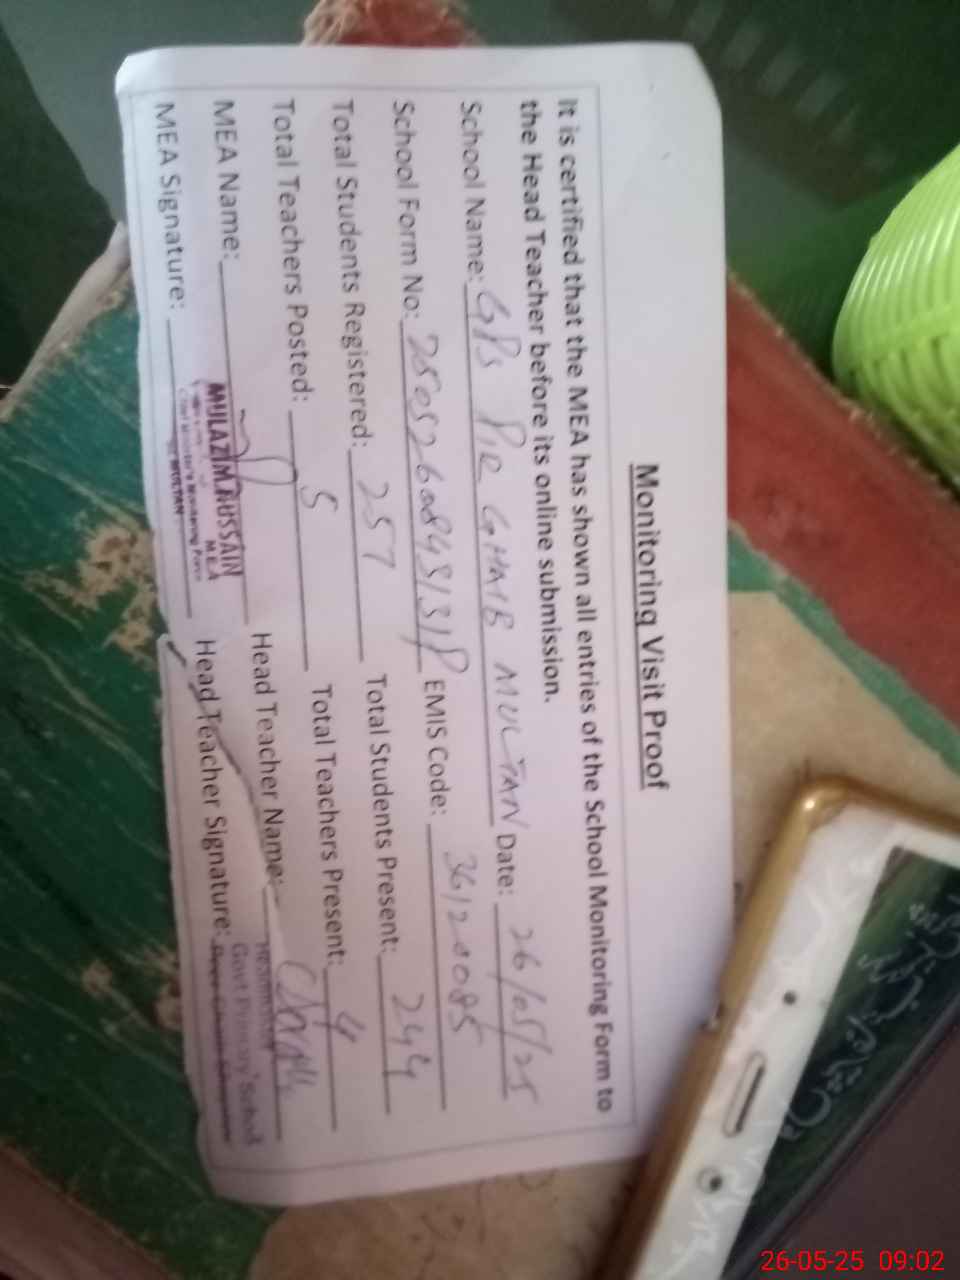 Monitoring Visit Proof
It is certified that the MEA has shown all entries of the School Monitoring Form to
the Head Teacher before its online submission.
School Name: GPS PIR GHAIB MULTAN Date: 26/05/25
School Form No: EMIS Code: 36120085
Total Students Registered: 257 Total Students Present: 244
Total Teachers Posted: 5 Total Teachers Present: 4
MEA Name: Head Teacher Name:
MULAZIM HUSSAIN
MEA
Chief Minister's Monitoring Force
MULTAN
MEA Signature: Head Teacher Signature:
Govt Primary School
26-05-25 09:02